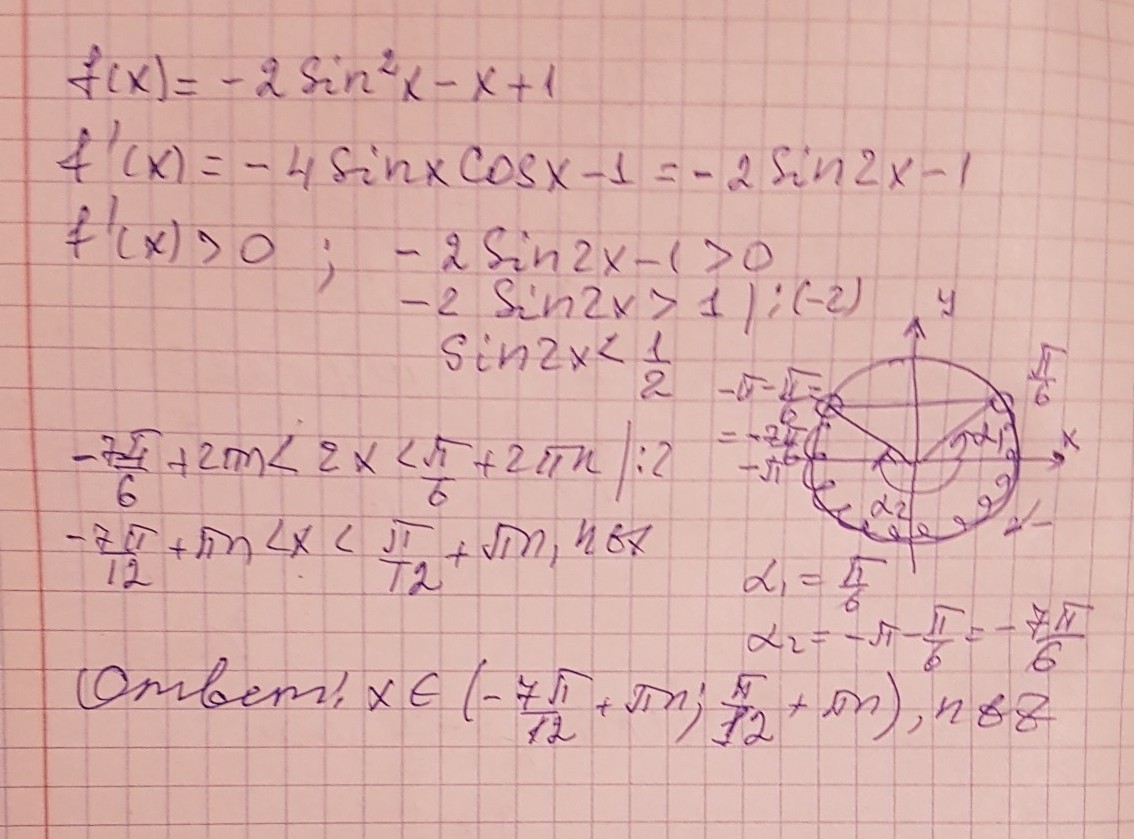 f(x) = -2 Sin²x - x + 1
f'(x) = -4 Sinx Cosx - 1 = -2 Sin2x - 1
f'(x) > 0 ; -2 Sin2x - 1 > 0
-2 Sin2x > 1 | :(-2)
Sin2x < 1/2
-7π/6 + 2πn < 2x < π/6 + 2πn | :2
-7π/12 + πn < x < π/12 + πn, n∈Z
y
π/6
-π - π/6 =
= -7π/6
x
-π
α₁
α₂
α₁ = π/6
α₂ = -π - π/6 = -7π/6
Ответ: x ∈ (-7π/12 + πn; π/12 + πn), n∈Z